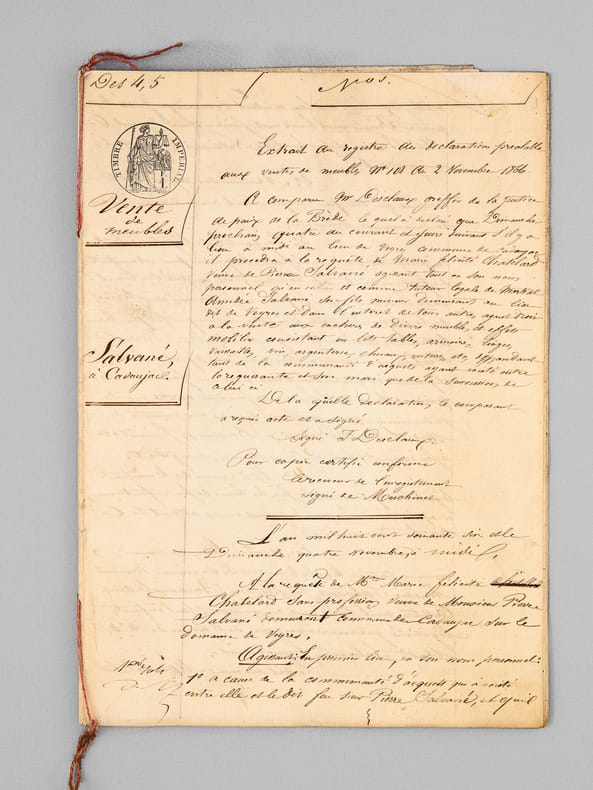 Des 4, 5
Nos.
TIMBRE IMPERIAL
Vente
de
meubles
Extrait du registre des déclarations préalables
aux ventes de meubles N° 108 du 2 Novembre 1866
A comparu Mr Desclaux greffier de la justice
de paix de la Brède lequel a déclaré que Dimanche
prochain, quatre du courant et jours suivants s'il y a
lieu à midi au lieu de Veyres commune de Cadaujac
il procédera à la requête de Marie félicité Chatelard
veuve de Pierre Salvané agissant tant en son nom
personnel qu'en celui et comme tuteur légale de
Amédée Salvané son fils mineur demeurant au lieu
dit de Veyres et dans l'intérêt de tous autres ayant droit
à la vente aux enchères de divers meubles et effets
mobilier consistant en lits, tables, armoire, linges,
vaisselle, vin, argenterie, voitures etc dépendant
tant de la communauté d'acquets ayant existé entre
la requérante et son mari que de la succession de
celui ci
Salvané,
à Cadaujac.
De laquelle déclaration, le comparant
a requis acte et a signé
Signé F Desclaux
Pour copie certifié conforme
Le receveur de l'enregistrement
signé de
L'an mil huit cent soixante six et le
Dimanche quatre novembre à midi,
A la requête de Mme Marie félicité
Chatelard sans profession, veuve de Monsieur Pierre
Salvané demeurant commune de Cadaujac sur le
domaine de Veyres,
Agissant: En premier lieu, en son nom personnel:
1° à cause de la communauté d'acquets qui a existé
entre elle et le dit feu sieur Pierre Salvané, et qu'il